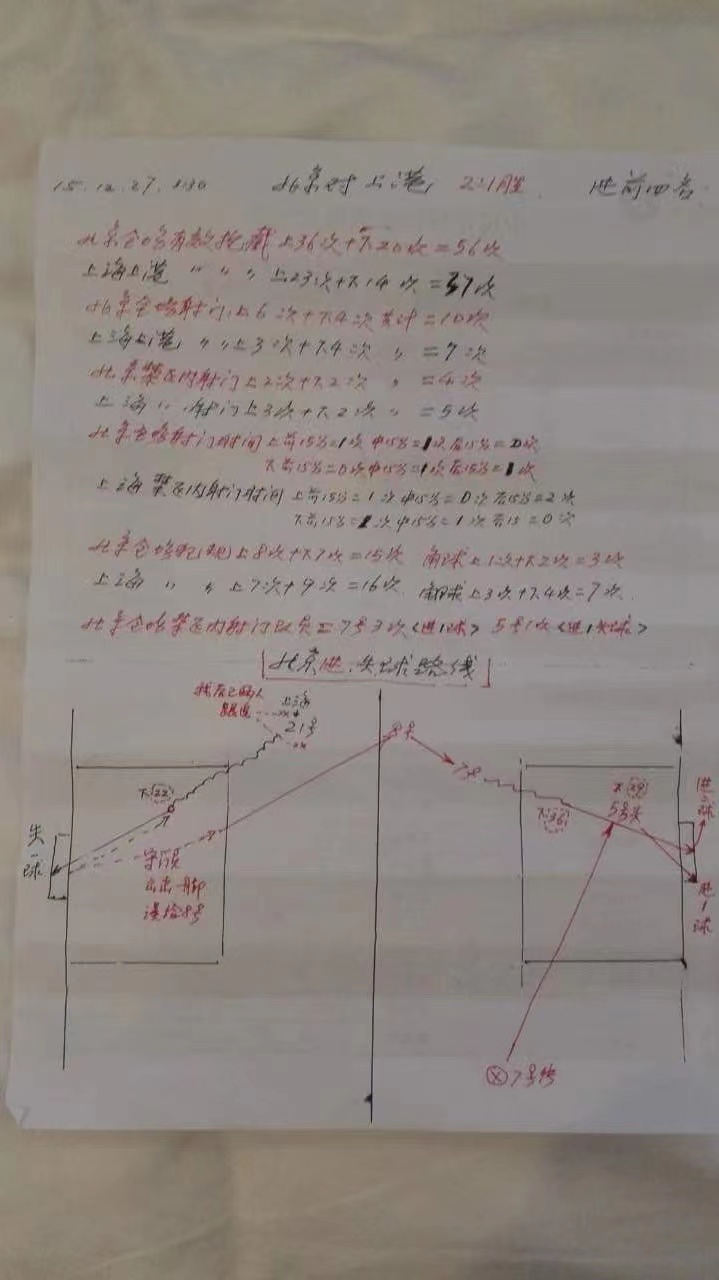 15.12.27. 北京对上港 2:1胜 进前四名
北京全场有效抢截上36次+下20次=56次
上海上港 〃 〃 〃 上23次+下14次=37次
北京全场射门上6次+下4次共计=10次
上海上港 〃 〃 上3次+下4次 〃 =7次
北京禁区内射门上2次+下2次 〃 =4次
上海 〃 射门上3次+下2次 〃 =5次
北京全场射门时间上前15分=1次中15分=1次后15分=0次
下前15分=0次中15分=1次后15分=1次
上海禁区内射门时间上前15分=1次中15分=0次后15分=2次
下前15分=1次中15分=1次后15=0次
北京全场犯规上8次+下7次=15次 角球上1次+下2次=3次
上海 〃 〃 上7次+9次=16次 角球上3次+下4次=7次
北京全场禁区内射门队员=7号3次<进1球> 5号1次<进1头球>
北京进.失球路线
上海
21号
8号
7号
下(22)
下(36)
下(29)
5号头
失一球
守门员
出击用脚
误给8号
进2球
进1球
7号传